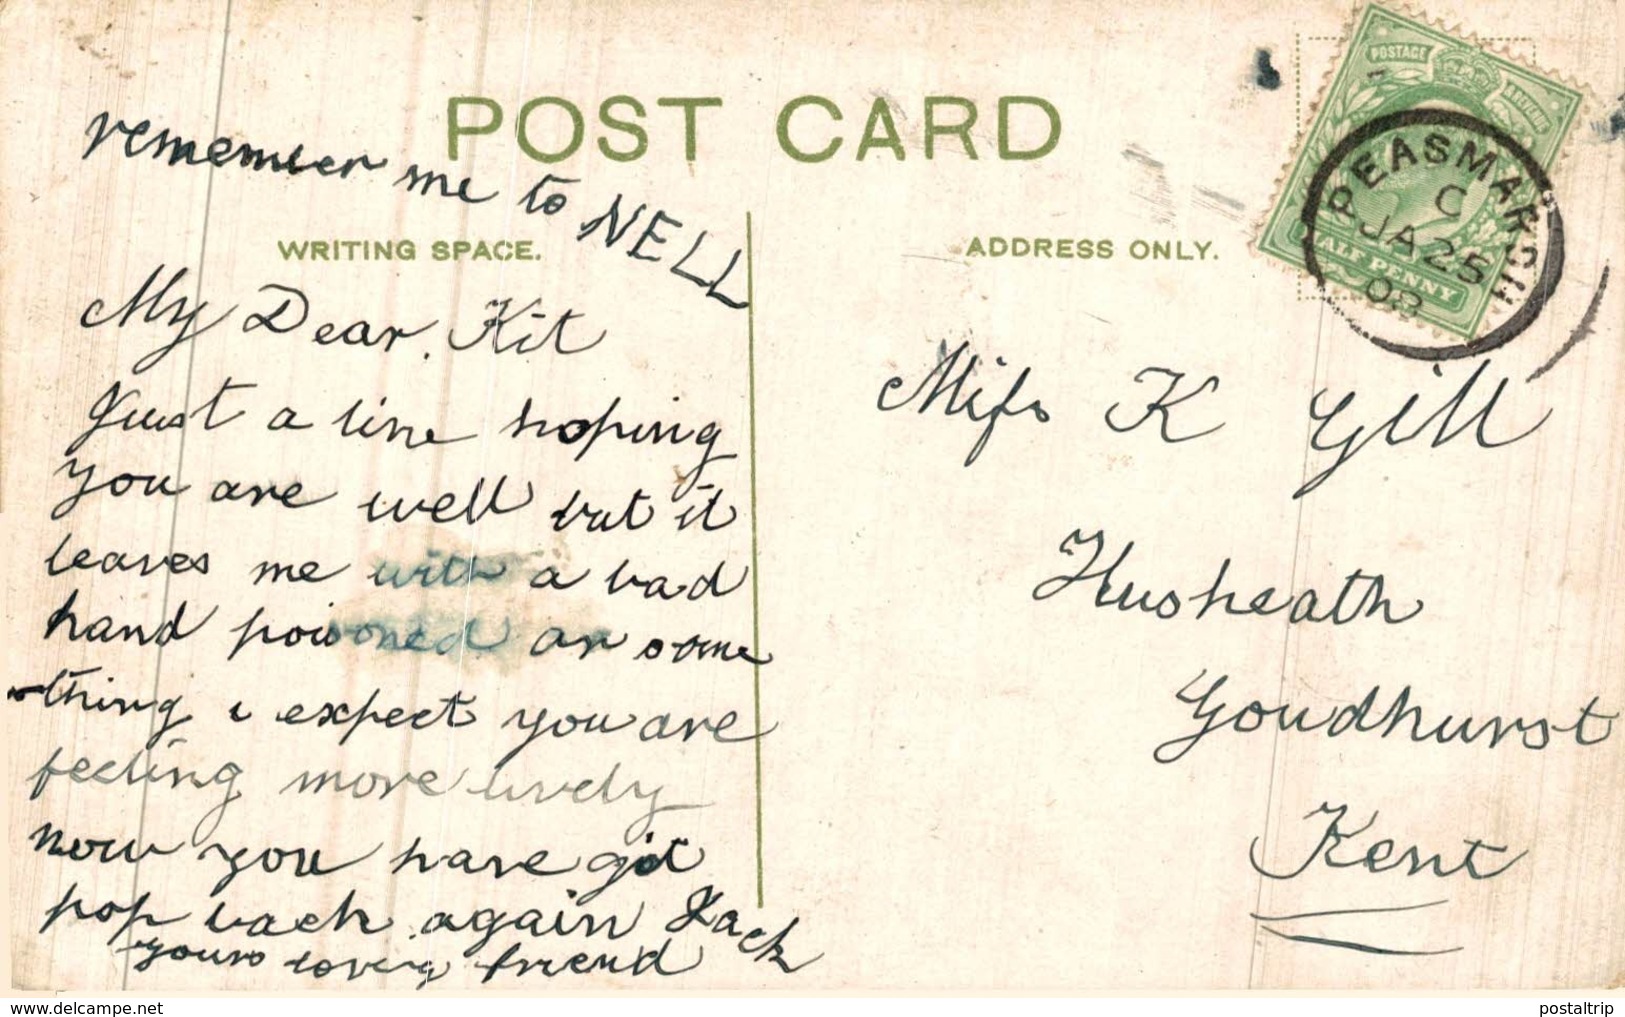 POST CARD
remember me to NELL
WRITING SPACE.
My Dear Kit
Just a line hoping
you are well but it
leaves me with a bad
hand poisoned or some
thing i expect you are
feeling more lively
now you have got
pop back again Jack
yours loving friend
ADDRESS ONLY.
POSTAGE
HALF PENNY
PEASMARSH
C
JA 25
08
Miss K Gill
Husheath
Goudhurst
Kent
www.delcampe.net
postaltrip